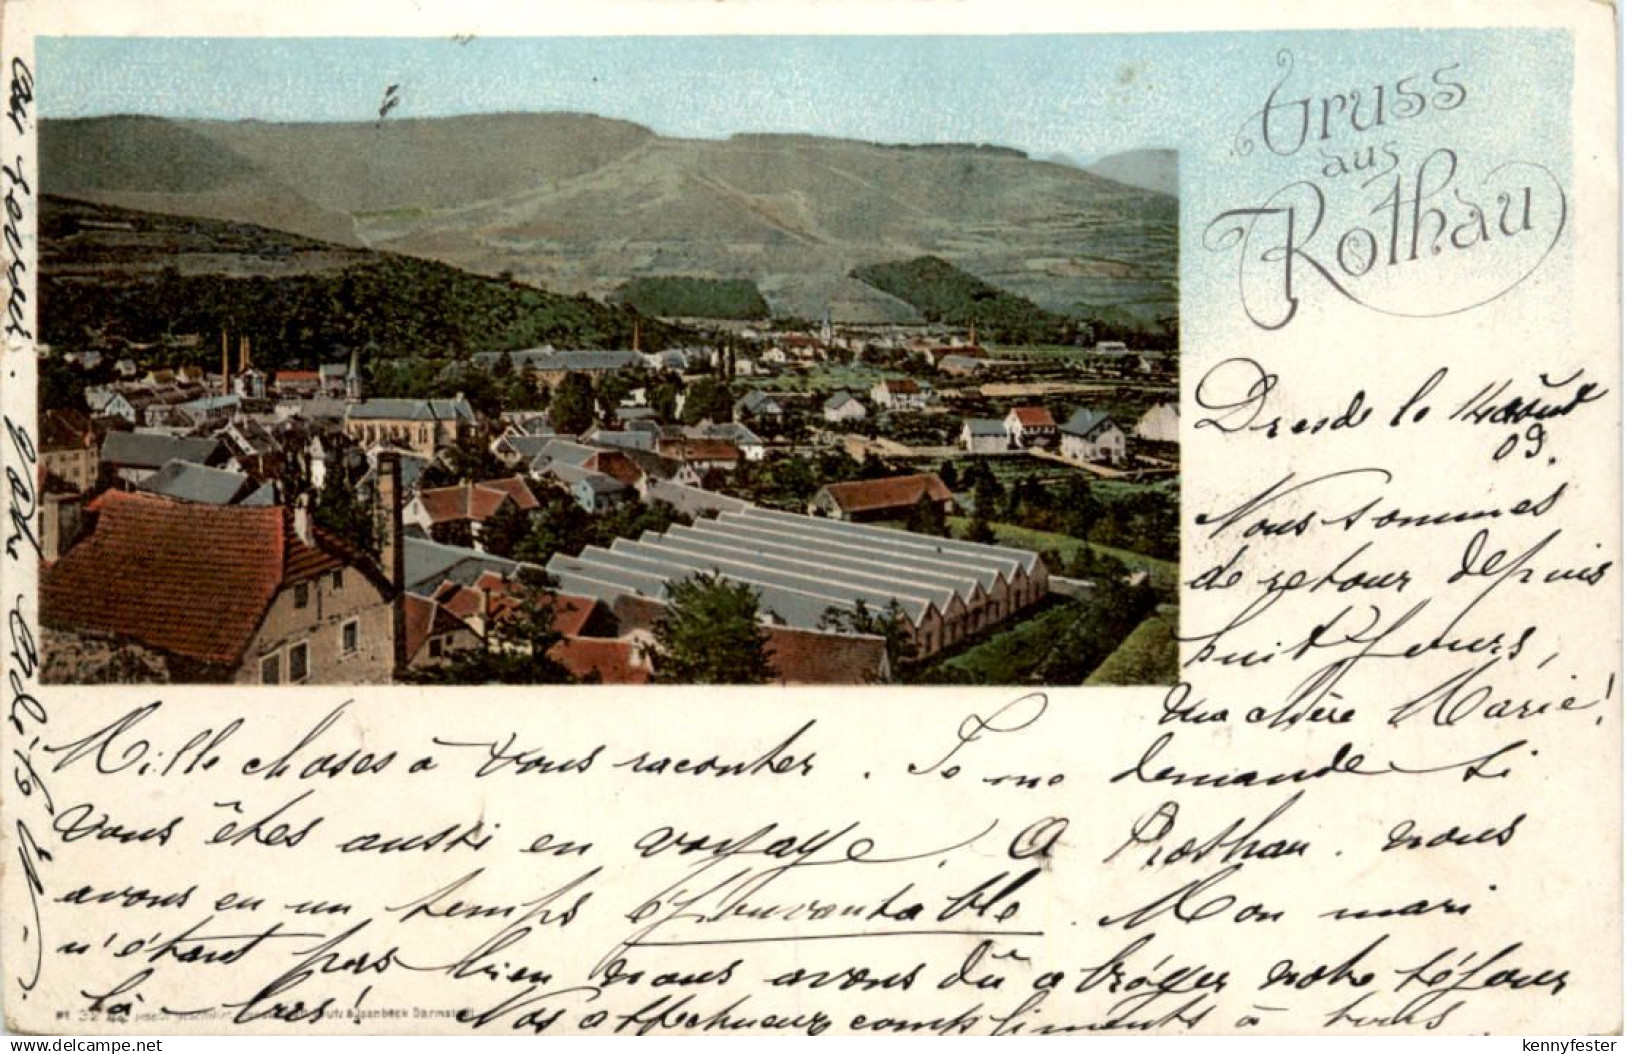 Gruss
aus
Rothau
Dresde le 14 août
09.
Nous sommes
de retour depuis
huit jours,
ma chère Marie!
Mille choses à vous raconter. Je me demande si
vous êtes aussi en voyage. A Rothau nous
avons eu un temps épouvantable. Mon mari
n'étant pas bien nous avons dû abréger notre séjour
là-bas! Nos affectueux compliments à tous
Darmstadt
kennyfester